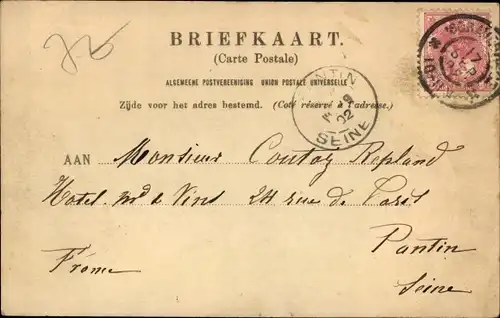 BRIEFKAART.
(Carte Postale)
ALGEMEENE POSTVEREENIGING UNION POSTALE UNIVERSELLE
Zijde voor het adres bestemd. (Coté réservé à l'adresse.)
PANTIN
02
SEINE
17
SEP
AAN Monsieur Coutoz Repland
Hotel. Md de Vins 24 rue de Paris
Pantin
Seine